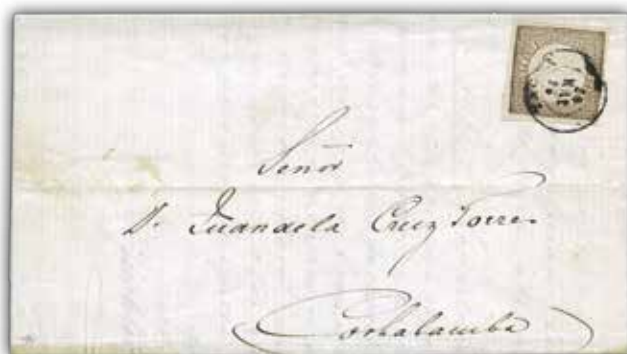 Señor
D. Juan de la Cruz Torres
Cochabamba